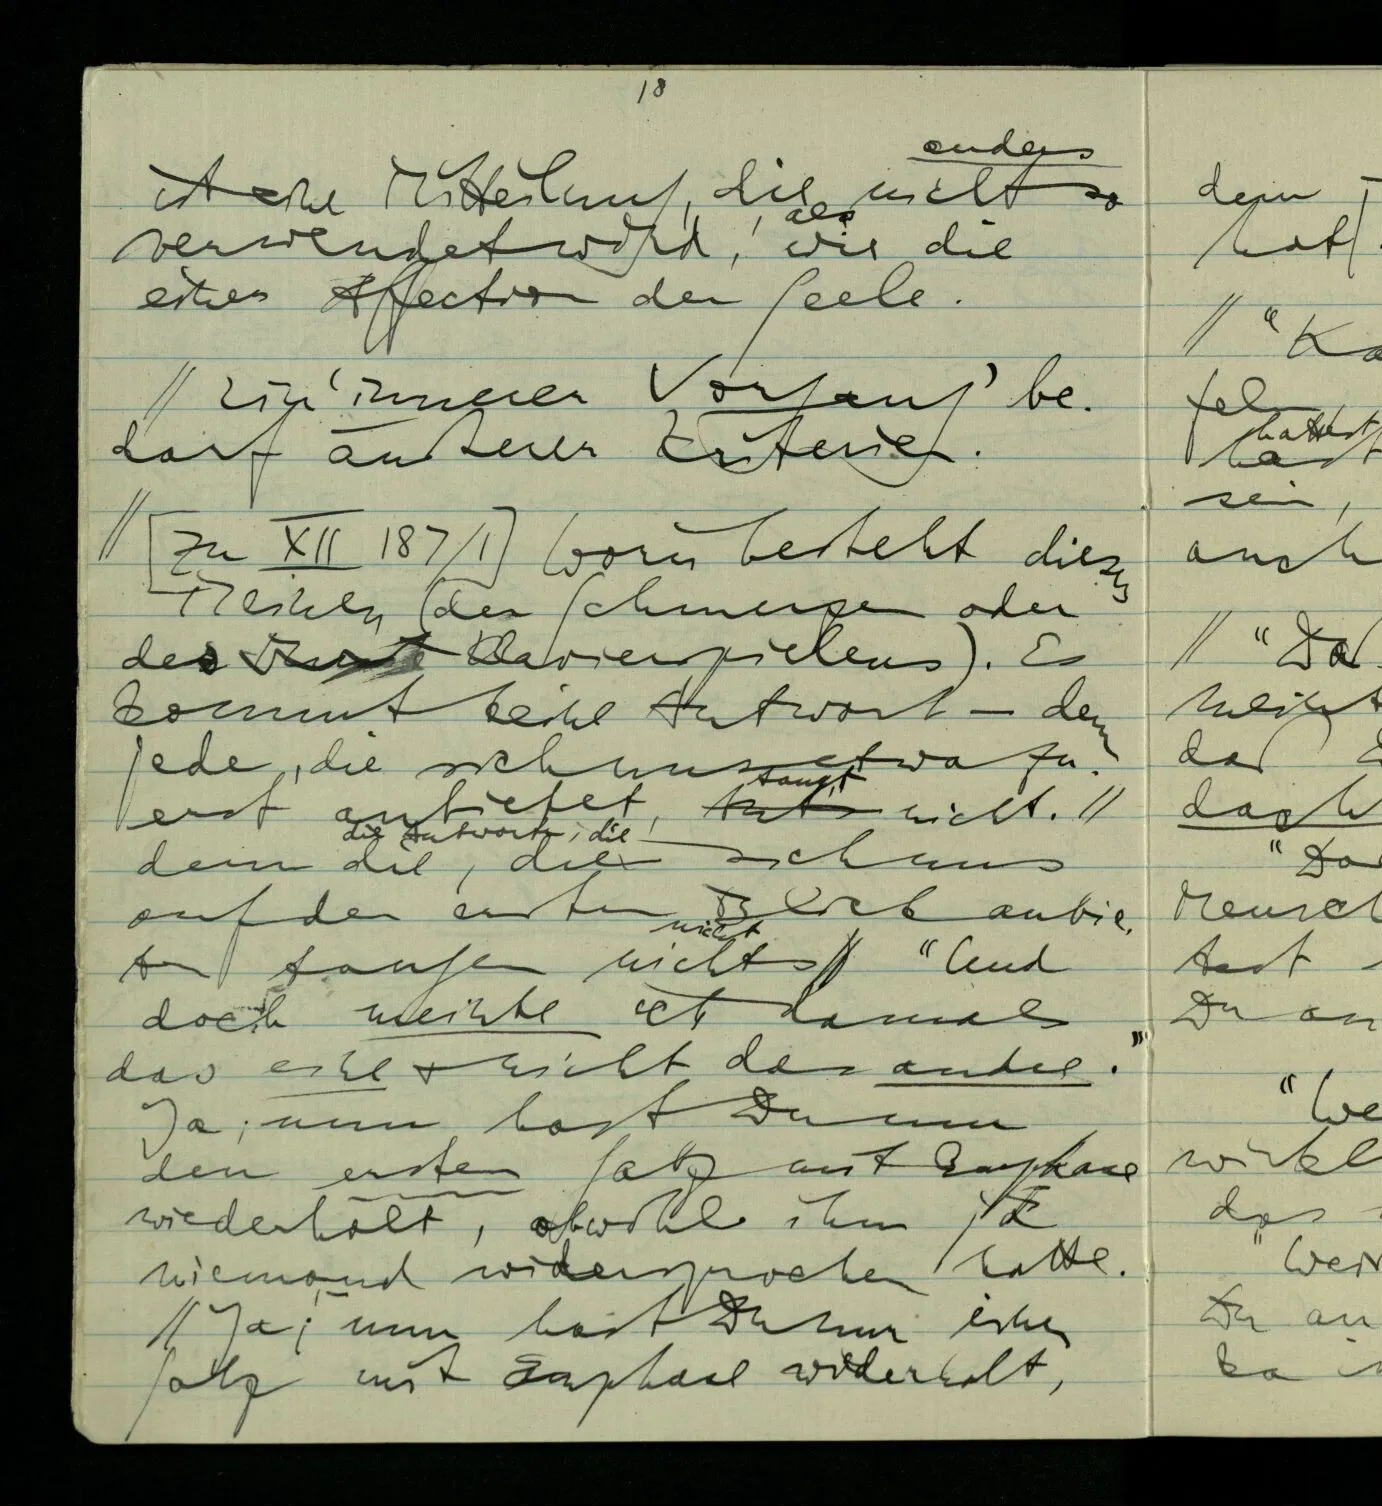 18
anders
ist eine Mitteilung, die nicht so
als
verwendet wird, wie die
einer Affection der Seele.
// Ein 'innerer Vorgang' be-
darf äußerer Kriterien.
// [Zu XII 187/1] Worin besteht dieses
Meinen (der Schmerzen oder
des Klavierspielens). Es
kommt keine Antwort – denn
jede, die sich uns etwa zu-
taugt
erst anbietet, nicht. //
die Antworten, die
denn die, die sich uns
auf den ersten Blick anbie-
nicht
ten taugen nichts // "Und
doch meinte ich damals
das eine + nicht das andre."
Ja; nun hast Du nur
den ersten Satz mit Emphase
wiederholt, obwohl ihm ja
niemand widersprochen hatte.
// Ja; nun hast Du nur einen
Satz mit Emphase wiederholt,
dem
hat/.
// "Ka
feln
hattest
hast
sein,
auch
// "Da
meint
das
doch
"Da
Mensch
test
Du an
"We
wirkl
das
"Wei
Du an